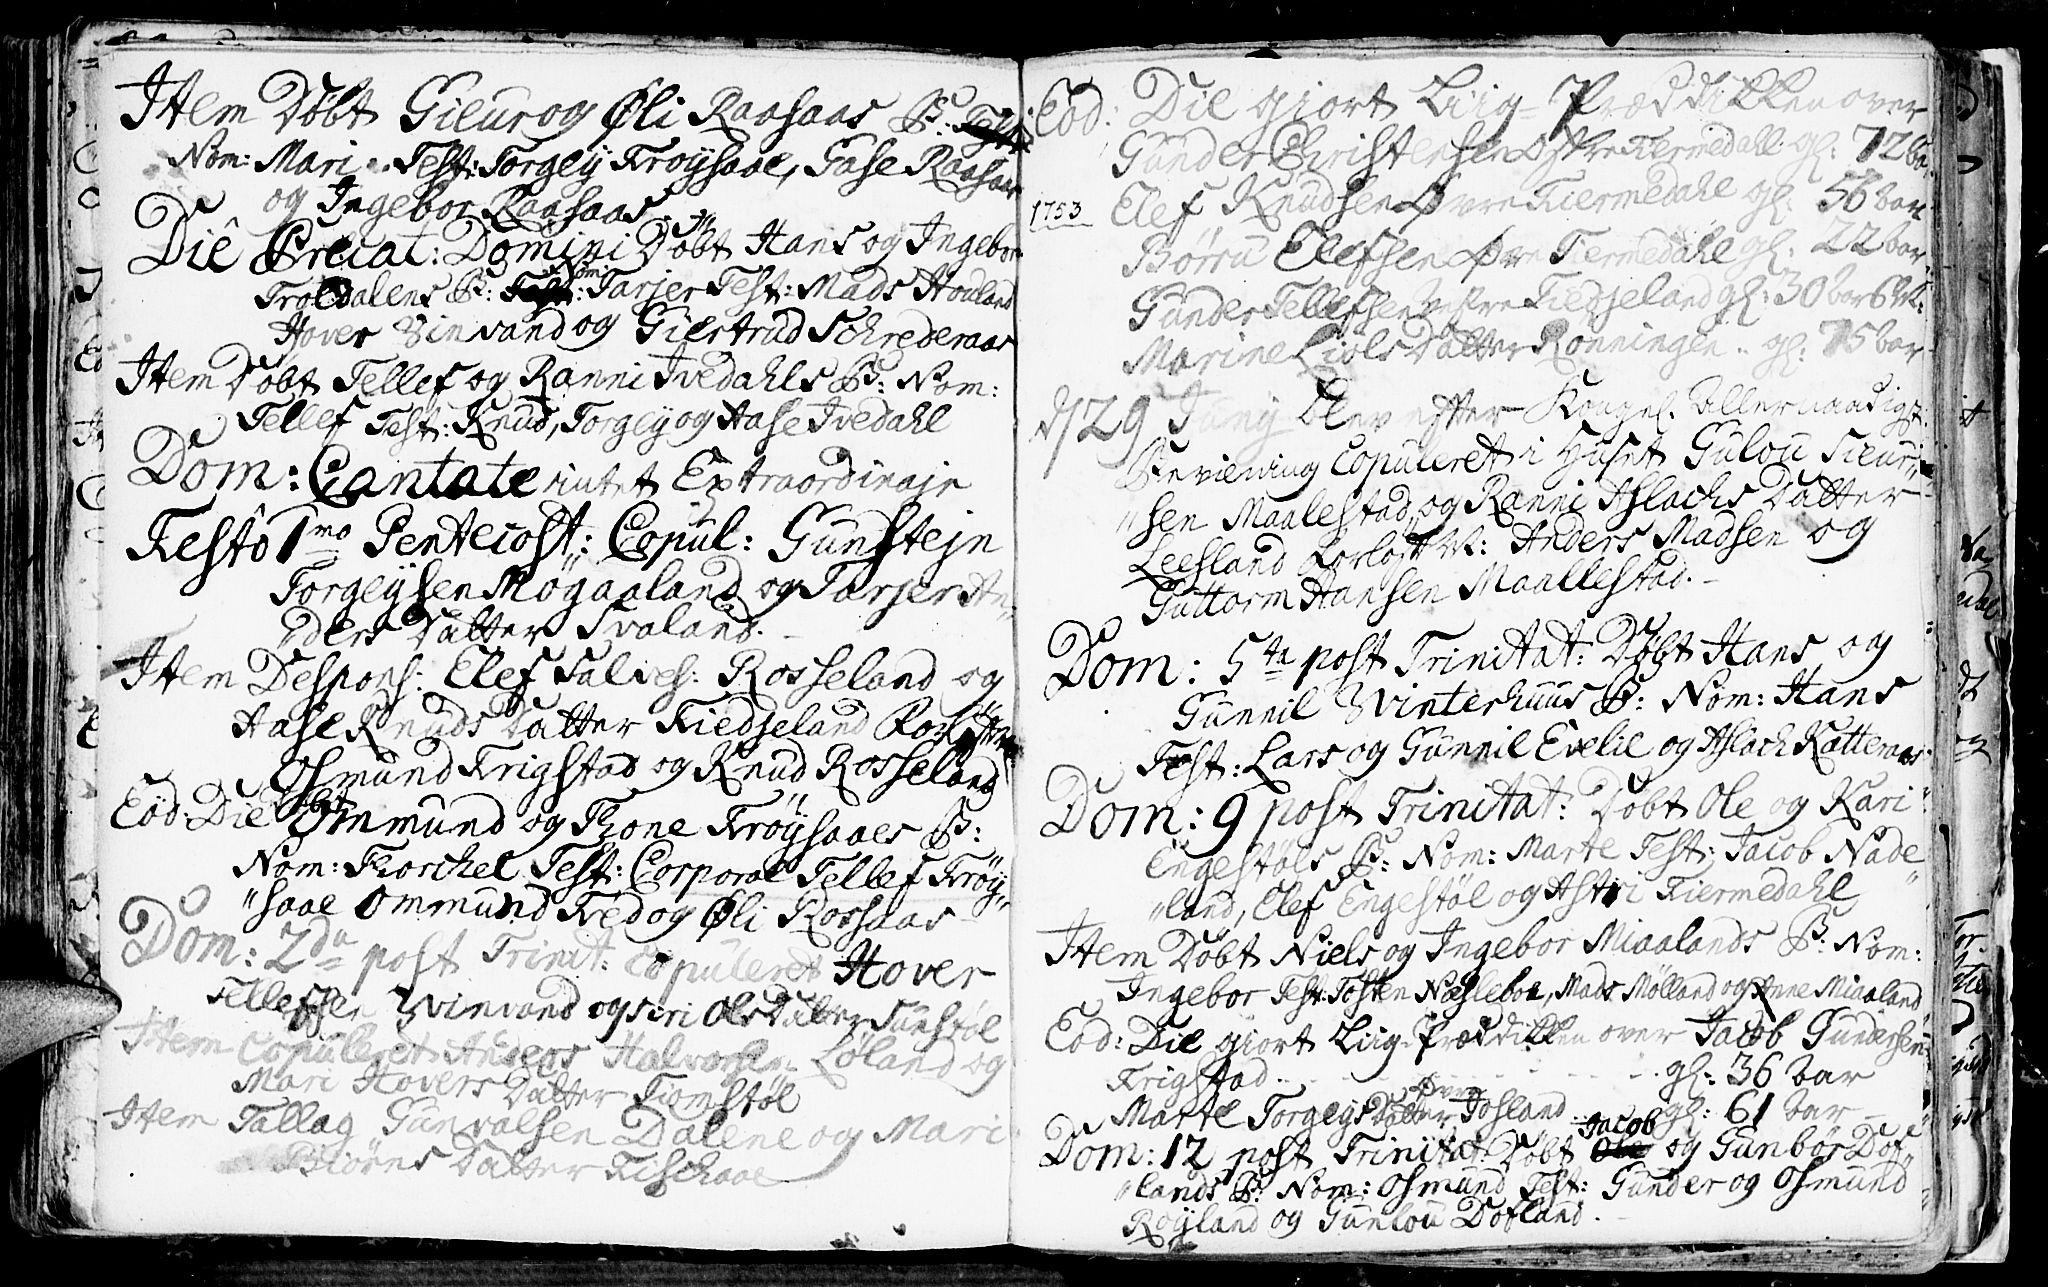 Item Døbt Gieur og Øli Raasaas B:
Nom: Mari Test: Torgey Frøysaae, Gase Raasaas
og Ingebor Raasaas
Die Preciat: Domini Døbt Hans og Ingebor
Troldalens B: Nom: Tarjer Test: Mads Houland
Hover Vinvand og Giertrud Schrederaas
Item Døbt Tellef og Ranni Ivedahls B: Nom:
Tellef Test: Knud, Torgey og Aase Ivedahl
Dom: Cantate intet Extraordinair
Festô 1mo Pentecost: Copul: Gunstejn
Torgeysen Mogaaland og Tarjer An-
"ders Datter Svaland.
Item Despons: Elef Salves: Rosseland og
Aase Knuds Datter Fiedjeland
Osmund Frigstad og Knud Rosseland
Eod: Die Døbt Ommund og Thone Frøysaaes B:
Nom: Thorchel Test: Corporal Tellef Frøy-
"saae Ommund Tved og Øli Rossaas
Dom: 2da post Trinit: Copuleret Hover
Tellefsen Vinvand og Siri Ols Datter Sunstøl
Item Copuleret Anders Halvorsen Løland og
Mari Hovers Datter Tiomstøl
Item Tallag Gunvalsen Dalene og Mari
Biørns Datter Fischaae
Eod: Die giort Liig-Prædikken over
Gunder Christensen Øvre Tiermedall gl: 72 bar
1753
Elef Knudsen Øvre Tiermedahl gl: 56 bar
Børru Elefsen Øvre Tiermedahl gl: 22 bar
Gunder Tellefsen Fiedjeland gl: 30 bar 6
Marine Liøls Datter Rønningen .. gl: 75 bar
d/29 Juny blev efter Kongel. Allernaadigst
Bevilning Copuleret i Huset Gulou Sieur-
"sen Maalestad og Ranni Aslachs Datter
Leesland Anders Madsen og
Guttorm Hansen Maallestad.
Dom: 5ta post Trinitat: Døbt Hans og
Gunnil Vinterhuus B: Nom: Hans
Test: Lars og Gunnil Evelie og Aslach Katteraas
Dom: 9 post Trinitat: Døbt Ole og Kari
Engestøls B: Nom: Marte Test: Jacob Nade-
"land, Elef Engestøl og Astri Tiermedahl
Item Døbt Niels og Ingebor Miaalands B: Nom:
Ingebor Test: Tosten Næsleboe, Mads Mølland og Anne Miaaland
Eod: Die giort Liig-Prædikken over Jacob Gundersen
Frigstad . . . . . . gl: 36 bar
Marte Torgeys Datter Øvre Josland . . gl: 61 bar
Dom: 12 post Trinitat: Døbt Jacob og Gunbør Dof-
"lands B: Nom: Osmund Test: Gunder og Osmund
Røyland og Gunlou Dofland.